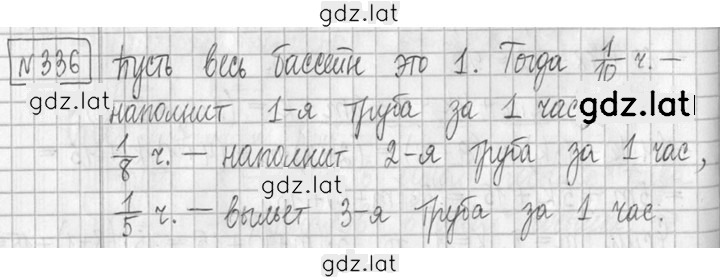 gdz.lat
№336 Пусть весь бассейн это 1. Тогда 1/10 ч. —
gdz.lat
наполнит 1-я труба за 1 час,
gdz.lat
1/8 ч. — наполнит 2-я труба за 1 час,
gdz.lat
1/5 ч. — выльет 3-я труба за 1 час.
gdz.lat